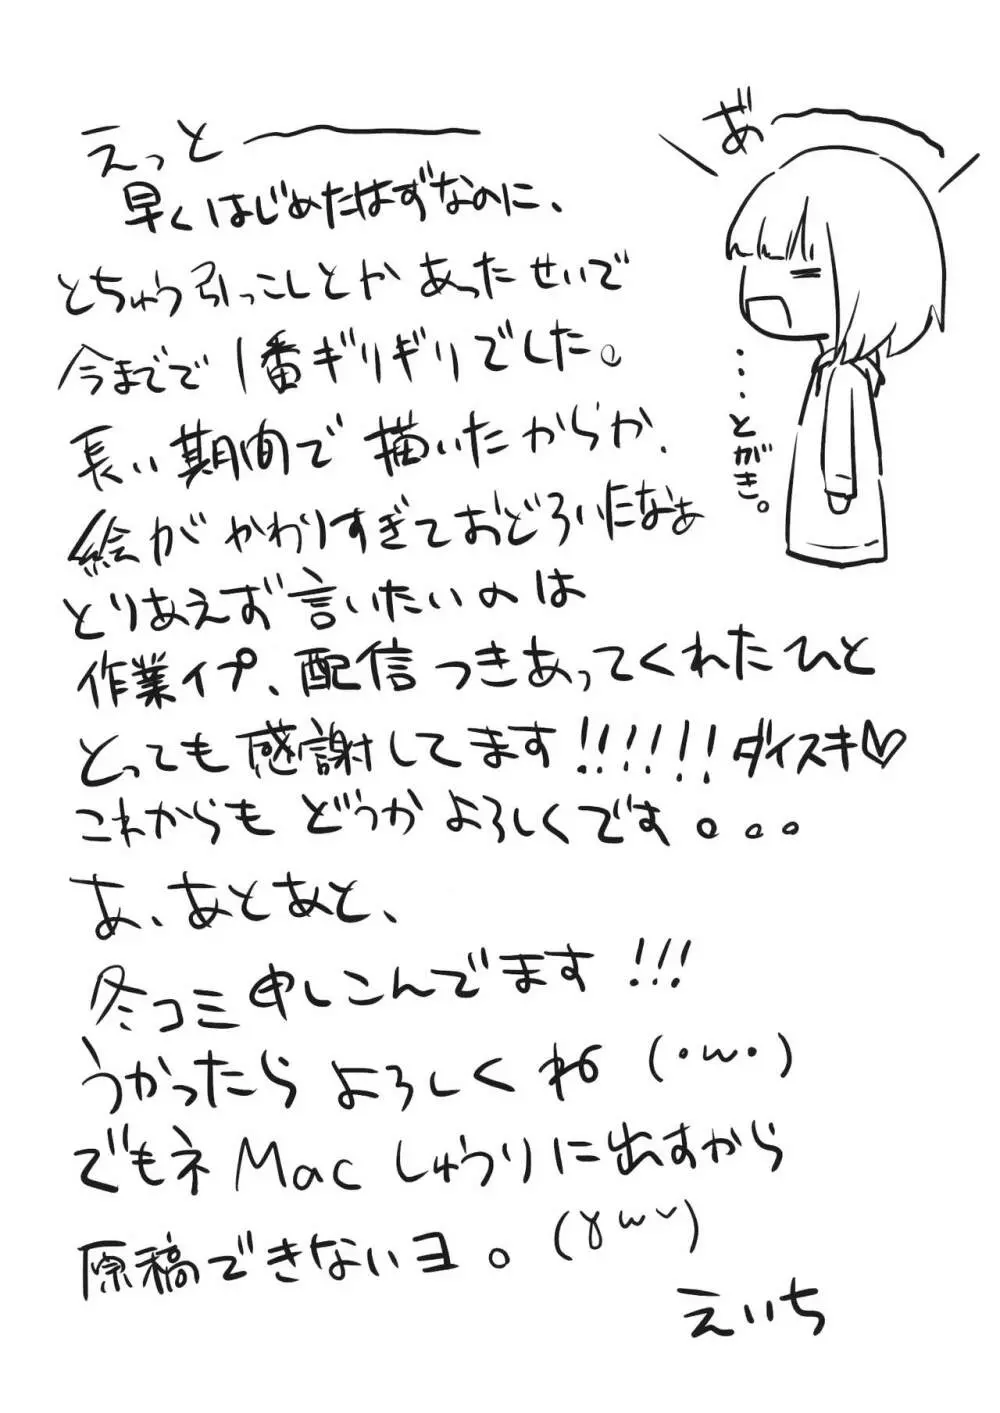 えっと――――
早くはじめたはずなのに、
とちゅう引っこしとかあったせいで
今までで1番ギリギリでした。
長い期間で描いたからか、
絵がかわりすぎておどろいたなぁ
とりあえず言いたいのは
作業イプ、配信つきあってくれたひと
とっても感謝してます!!!!!!ダイスキ♡
これからもどうかよろしくです。。。
あ、あとあと、
冬コミ申しこんでます!!!
うかったらよろしくね(・ω・)
でもネMacしゅうりに出すから
原稿できないヨ。(γω~)
えいち
あ゛
…とがき。